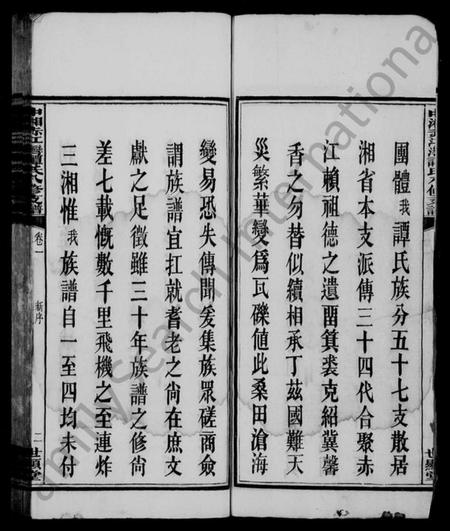 團體我譚氏族分五十七支散居
湘省本支派傳三十四代合聚赤
江賴祖德之遺畱箕裘克紹冀馨
香之勿替似續相承丁茲國難天
災繁華變爲瓦礫值此桑田滄海
變易恐失傳聞爰集族眾磋商僉
謂族譜宜扛就耆老之尙在庶文
獻之足徵雖三十年族譜之修尙
差七載慨數千里飛機之至連炸
三湘惟我族譜自一至四均未付
卷一
新序
二
世顯堂
世顯堂
Family Search International